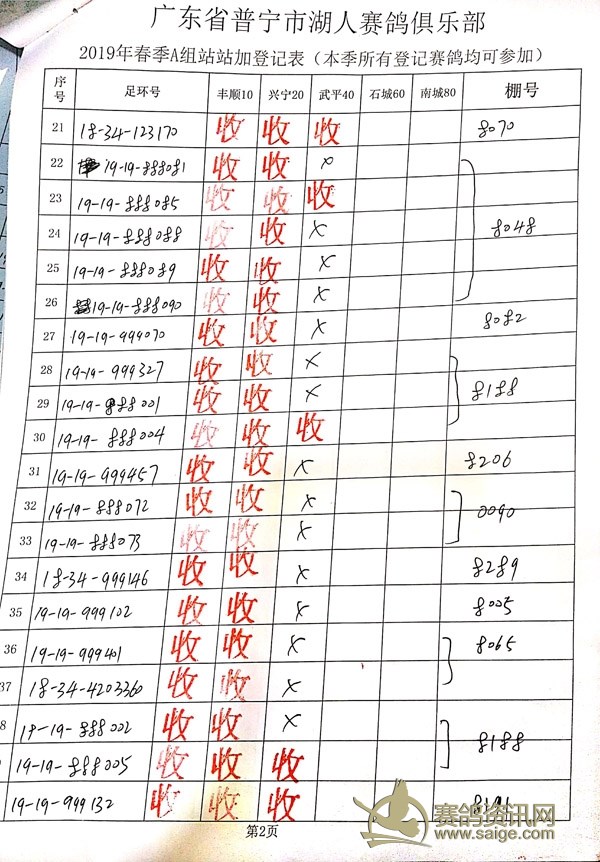 广东省普宁市湖人赛鸽俱乐部
2019年春季A组站站加登记表（本季所有登记赛鸽均可参加）
序号 足环号 丰顺10 兴宁20 武平40 石城60 南城80 棚号
21 18-34-123170 收 收 收 8070
22 19-19-888081 收 收 x
23 19-19-888085 收 收 收
24 19-19-888088 收 收 x 8048
25 19-19-888089 收 收 x
26 19-19-888090 收 收 x
27 19-19-999070 收 收 x 8082
28 19-19-999327 收 收 x
29 19-19-888001 收 收 x 8188
30 19-19-888004 收 收 收
31 19-19-999457 收 收 x 8206
32 19-19-888072 收 收 x 0090
33 19-19-888073 收 收 x
34 18-34-999146 收 收 x 8289
35 19-19-999102 收 收 x 8005
36 19-19-999401 收 收 x 8065
37 18-34-4203360 收 收 x
8 19-19-888002 收 收 x 8188
19-19-888005 收 收 收
19-19-999132 收 收 收 8191
第2页
赛鸽资讯网
www.saige.com